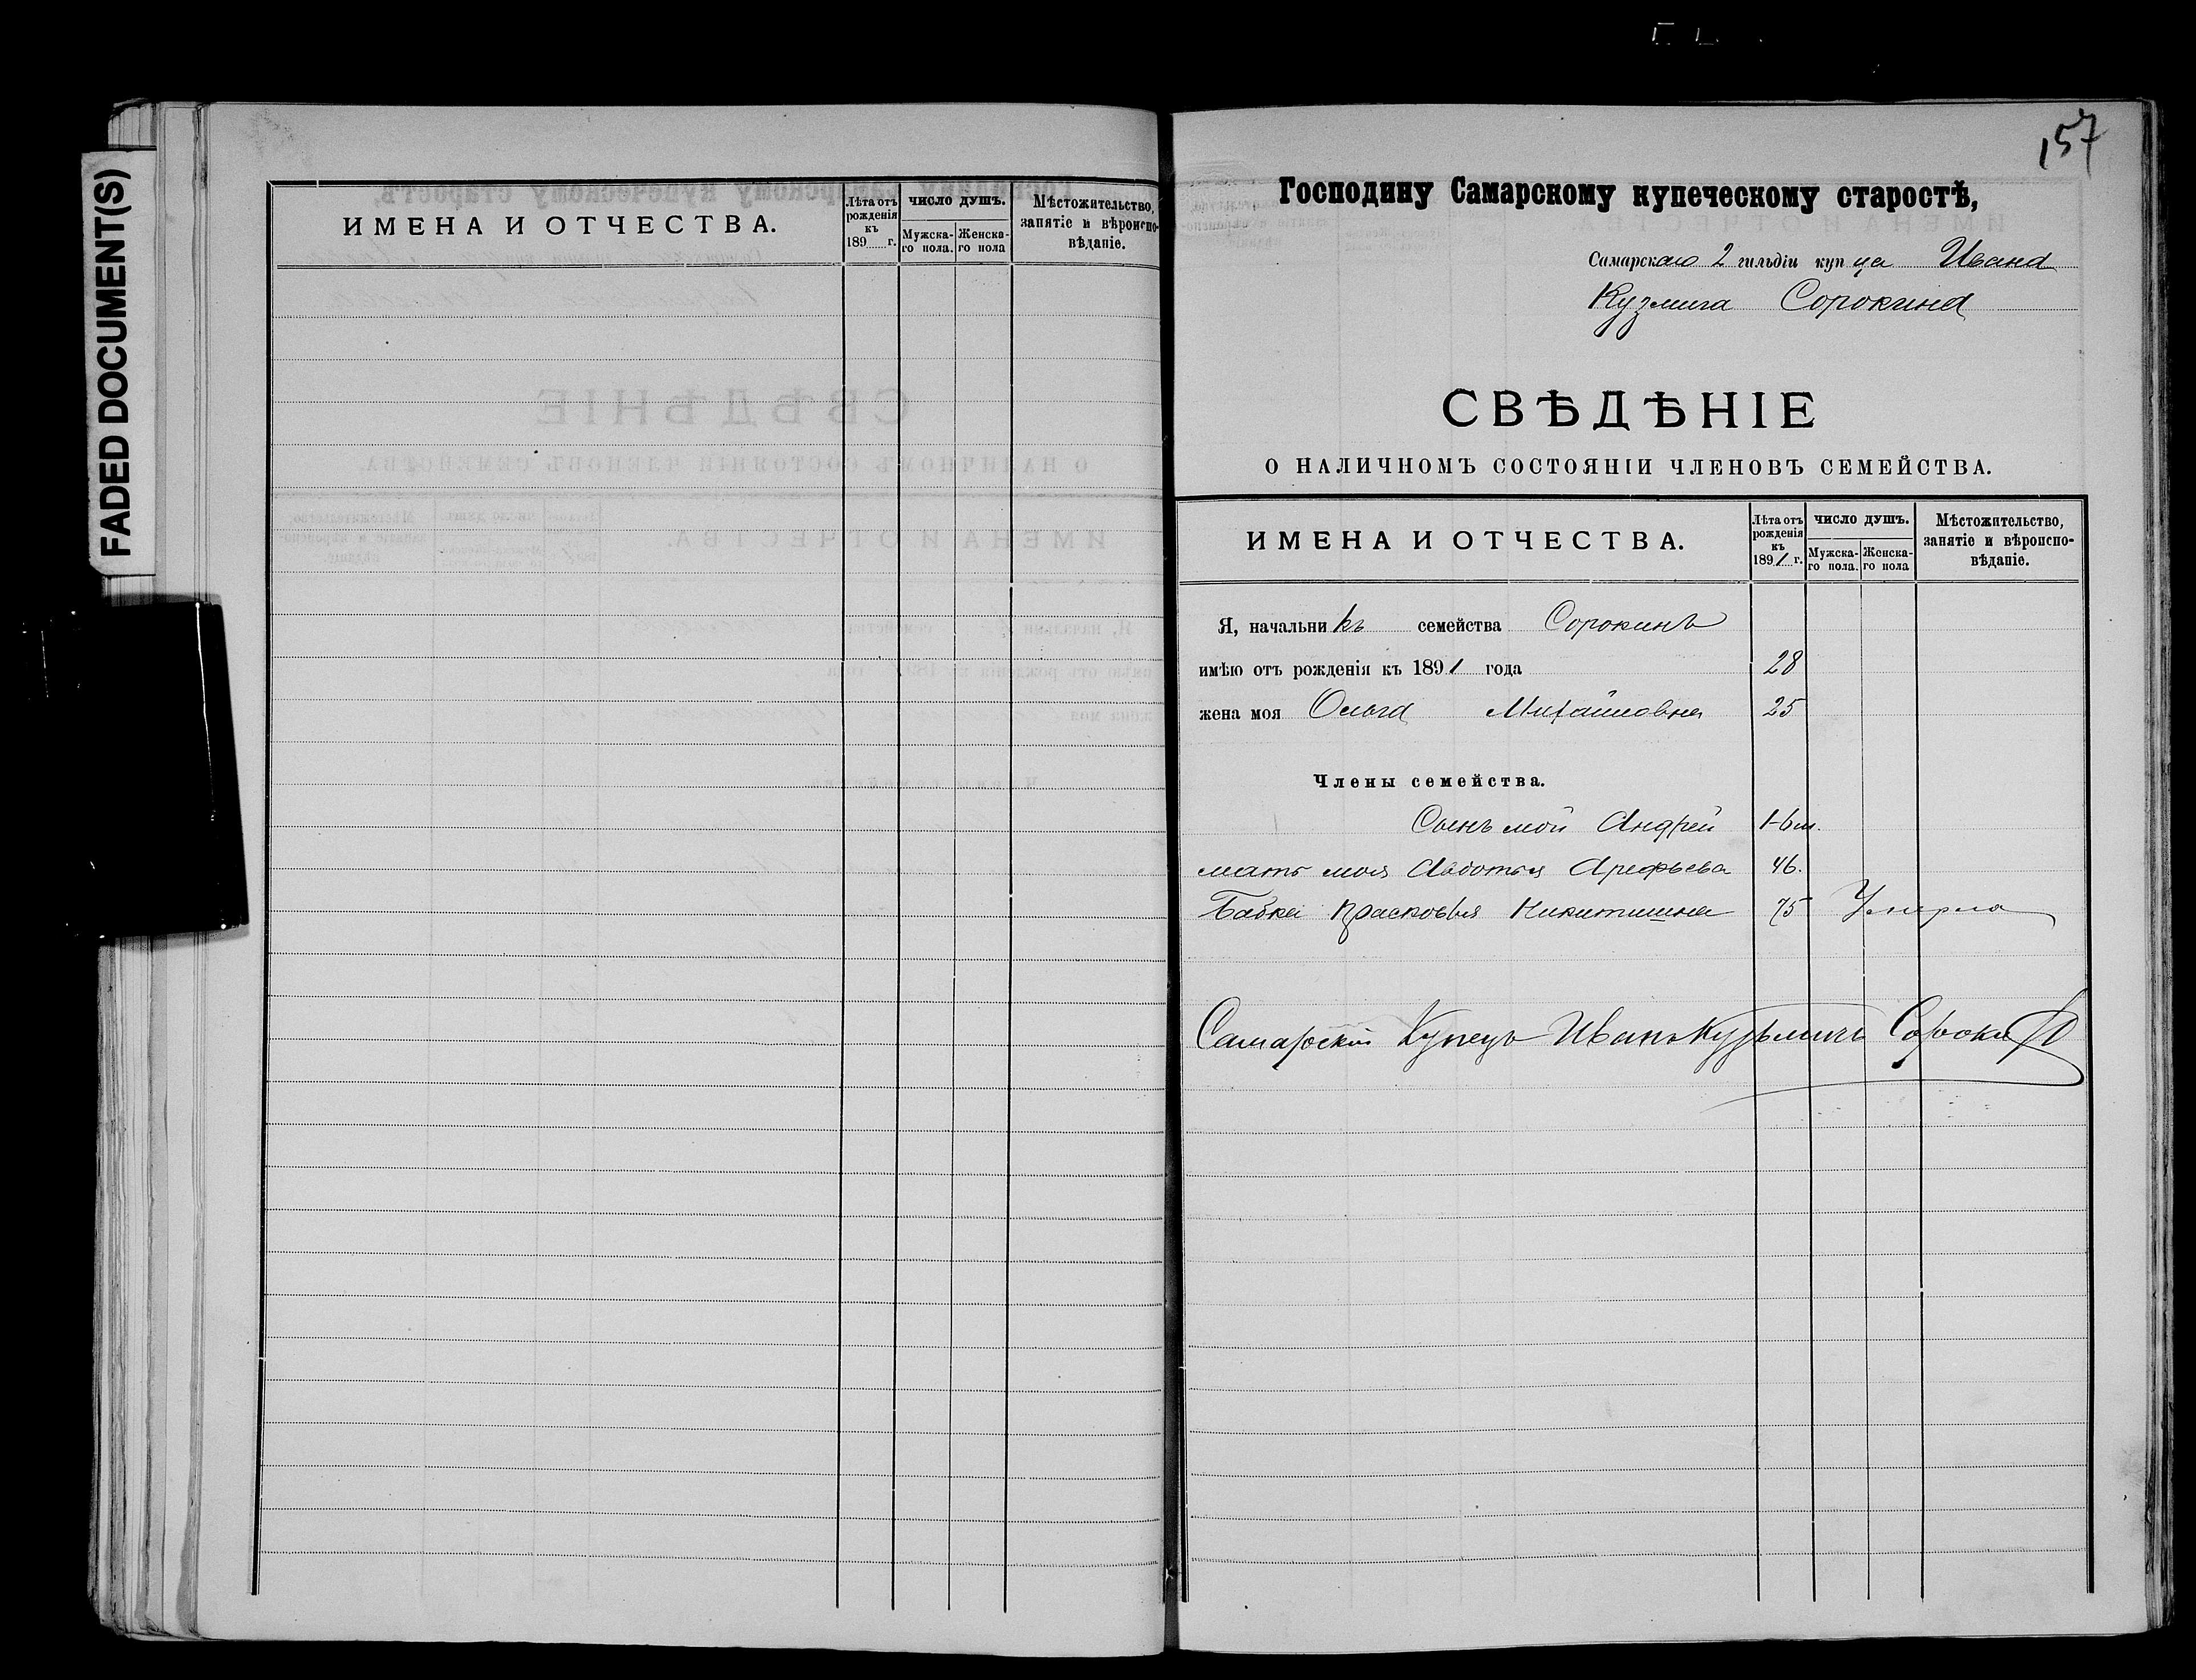 FADED DOCUMENT(S)
ИМЕНА И ОТЧЕСТВА.
Лѣта отъ рожденія къ 189 г.
ЧИСЛО ДУШЪ.
Мужска-го пола.
Женска-го пола
Мѣстожительство, занятіе и вѣроиспо-вѣданіе.
157
Господину Самарскому купеческому старостѣ,
Самарскаго 2 гильдіи купца Ивана
Кузмича Сорокина
СВѢДѢНІЕ
О НАЛИЧНОМЪ СОСТОЯНІИ ЧЛЕНОВЪ СЕМЕЙСТВА.
ИМЕНА И ОТЧЕСТВА.
Лѣта отъ рожденія къ 1891 г.
ЧИСЛО ДУШЪ.
Мужска-го пола.
Женска-го пола
Мѣстожительство, занятіе и вѣроиспо-вѣданіе.
Я, начальникъ семейства Сорокинъ
имѣю отъ рожденія къ 1891 года 28
жена моя Ольга Михайловна 25
Члены семейства.
Сынъ мой Андрей 1-6 м.
мать моя Авдотья Арефьева 46.
Бабка Прасковья Никитишна 75 Умерла
Самарскій Купецъ Иванъ Кузьмичъ Сорокин